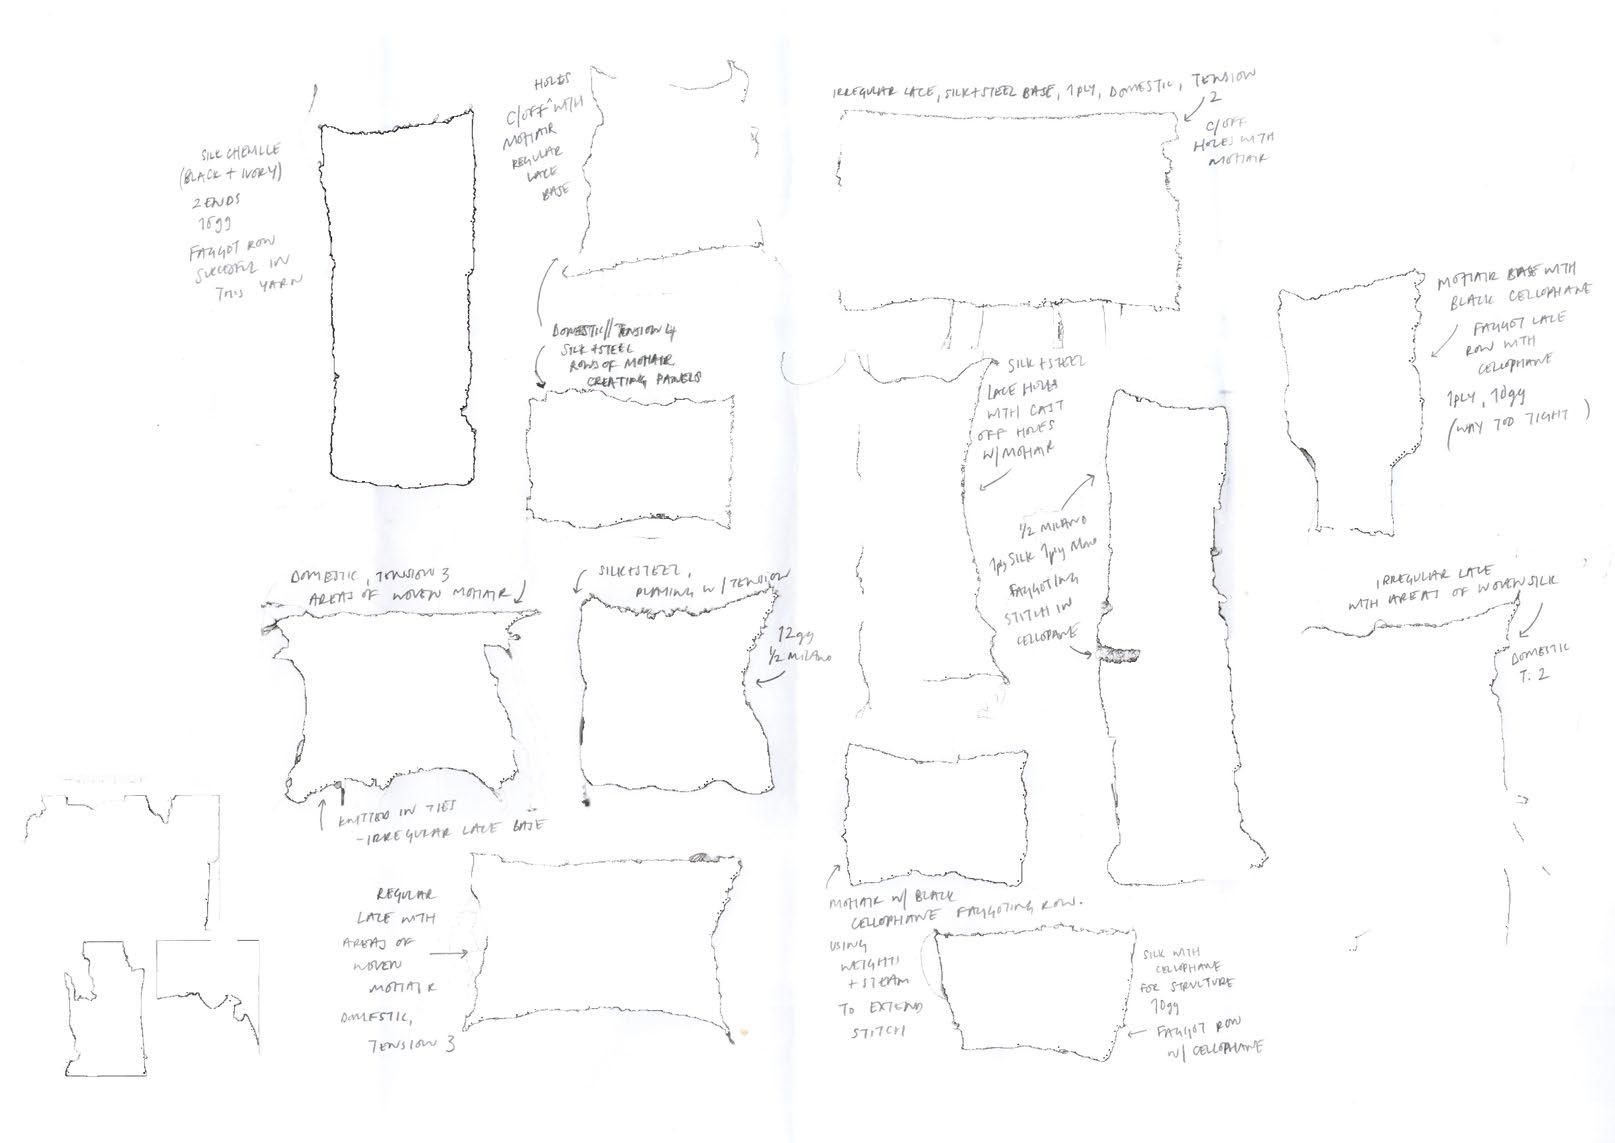 SILK CHENILLE
(BLACK + IVORY)
2 ENDS
10gg
FAGGOT ROW
SUCCESSFUL IN
THIS YARN
HOLES
C/OFF WITH
MOHAIR
REGULAR
LACE
BASE
DOMESTIC//TENSION 4
SILK+STEEL
ROWS OF MOHAIR
CREATING PANELS
IRREGULAR LACE, SILK+STEEL BASE, 1PLY, DOMESTIC, TENSION
2
C/OFF
HOLES WITH
MOHAIR
MOHAIR BASE WITH
BLACK CELLOPHANE
FAGGOT LACE
ROW WITH
CELLOPHANE
1PLY, 10gg
(WAY TOO TIGHT)
SILK+STEEL
LACE HOLES
WITH CAST
OFF HOLES
W/MOHAIR
1/2 MILANO
1ply SILK 1ply
FAGGOTING
STITCH IN
CELLOPANE
DOMESTIC, TENSION 3
AREAS OF WOVEN MOHAIR
KNITTED IN TIES
-IRREGULAR LACE BASE
SILK+STEEL,
PLAYING W/ TENSION
12gg
1/2 MILANO
IRREGULAR LACE
WITH AREAS OF WOVEN SILK
DOMESTIC
T: 2
REGULAR
LACE WITH
AREAS OF
WOVEN
MOHAIR
DOMESTIC,
TENSION 3
MOHAIR W/ BLACK
CELLOPHANE FAGGOTING ROW.
USING
WEIGHTS
+ STEAM
TO EXTEND
STITCH
SILK WITH
CELLOPHANE
FOR STRUCTURE
10gg
FAGGOT ROW
W/ CELLOPHANE